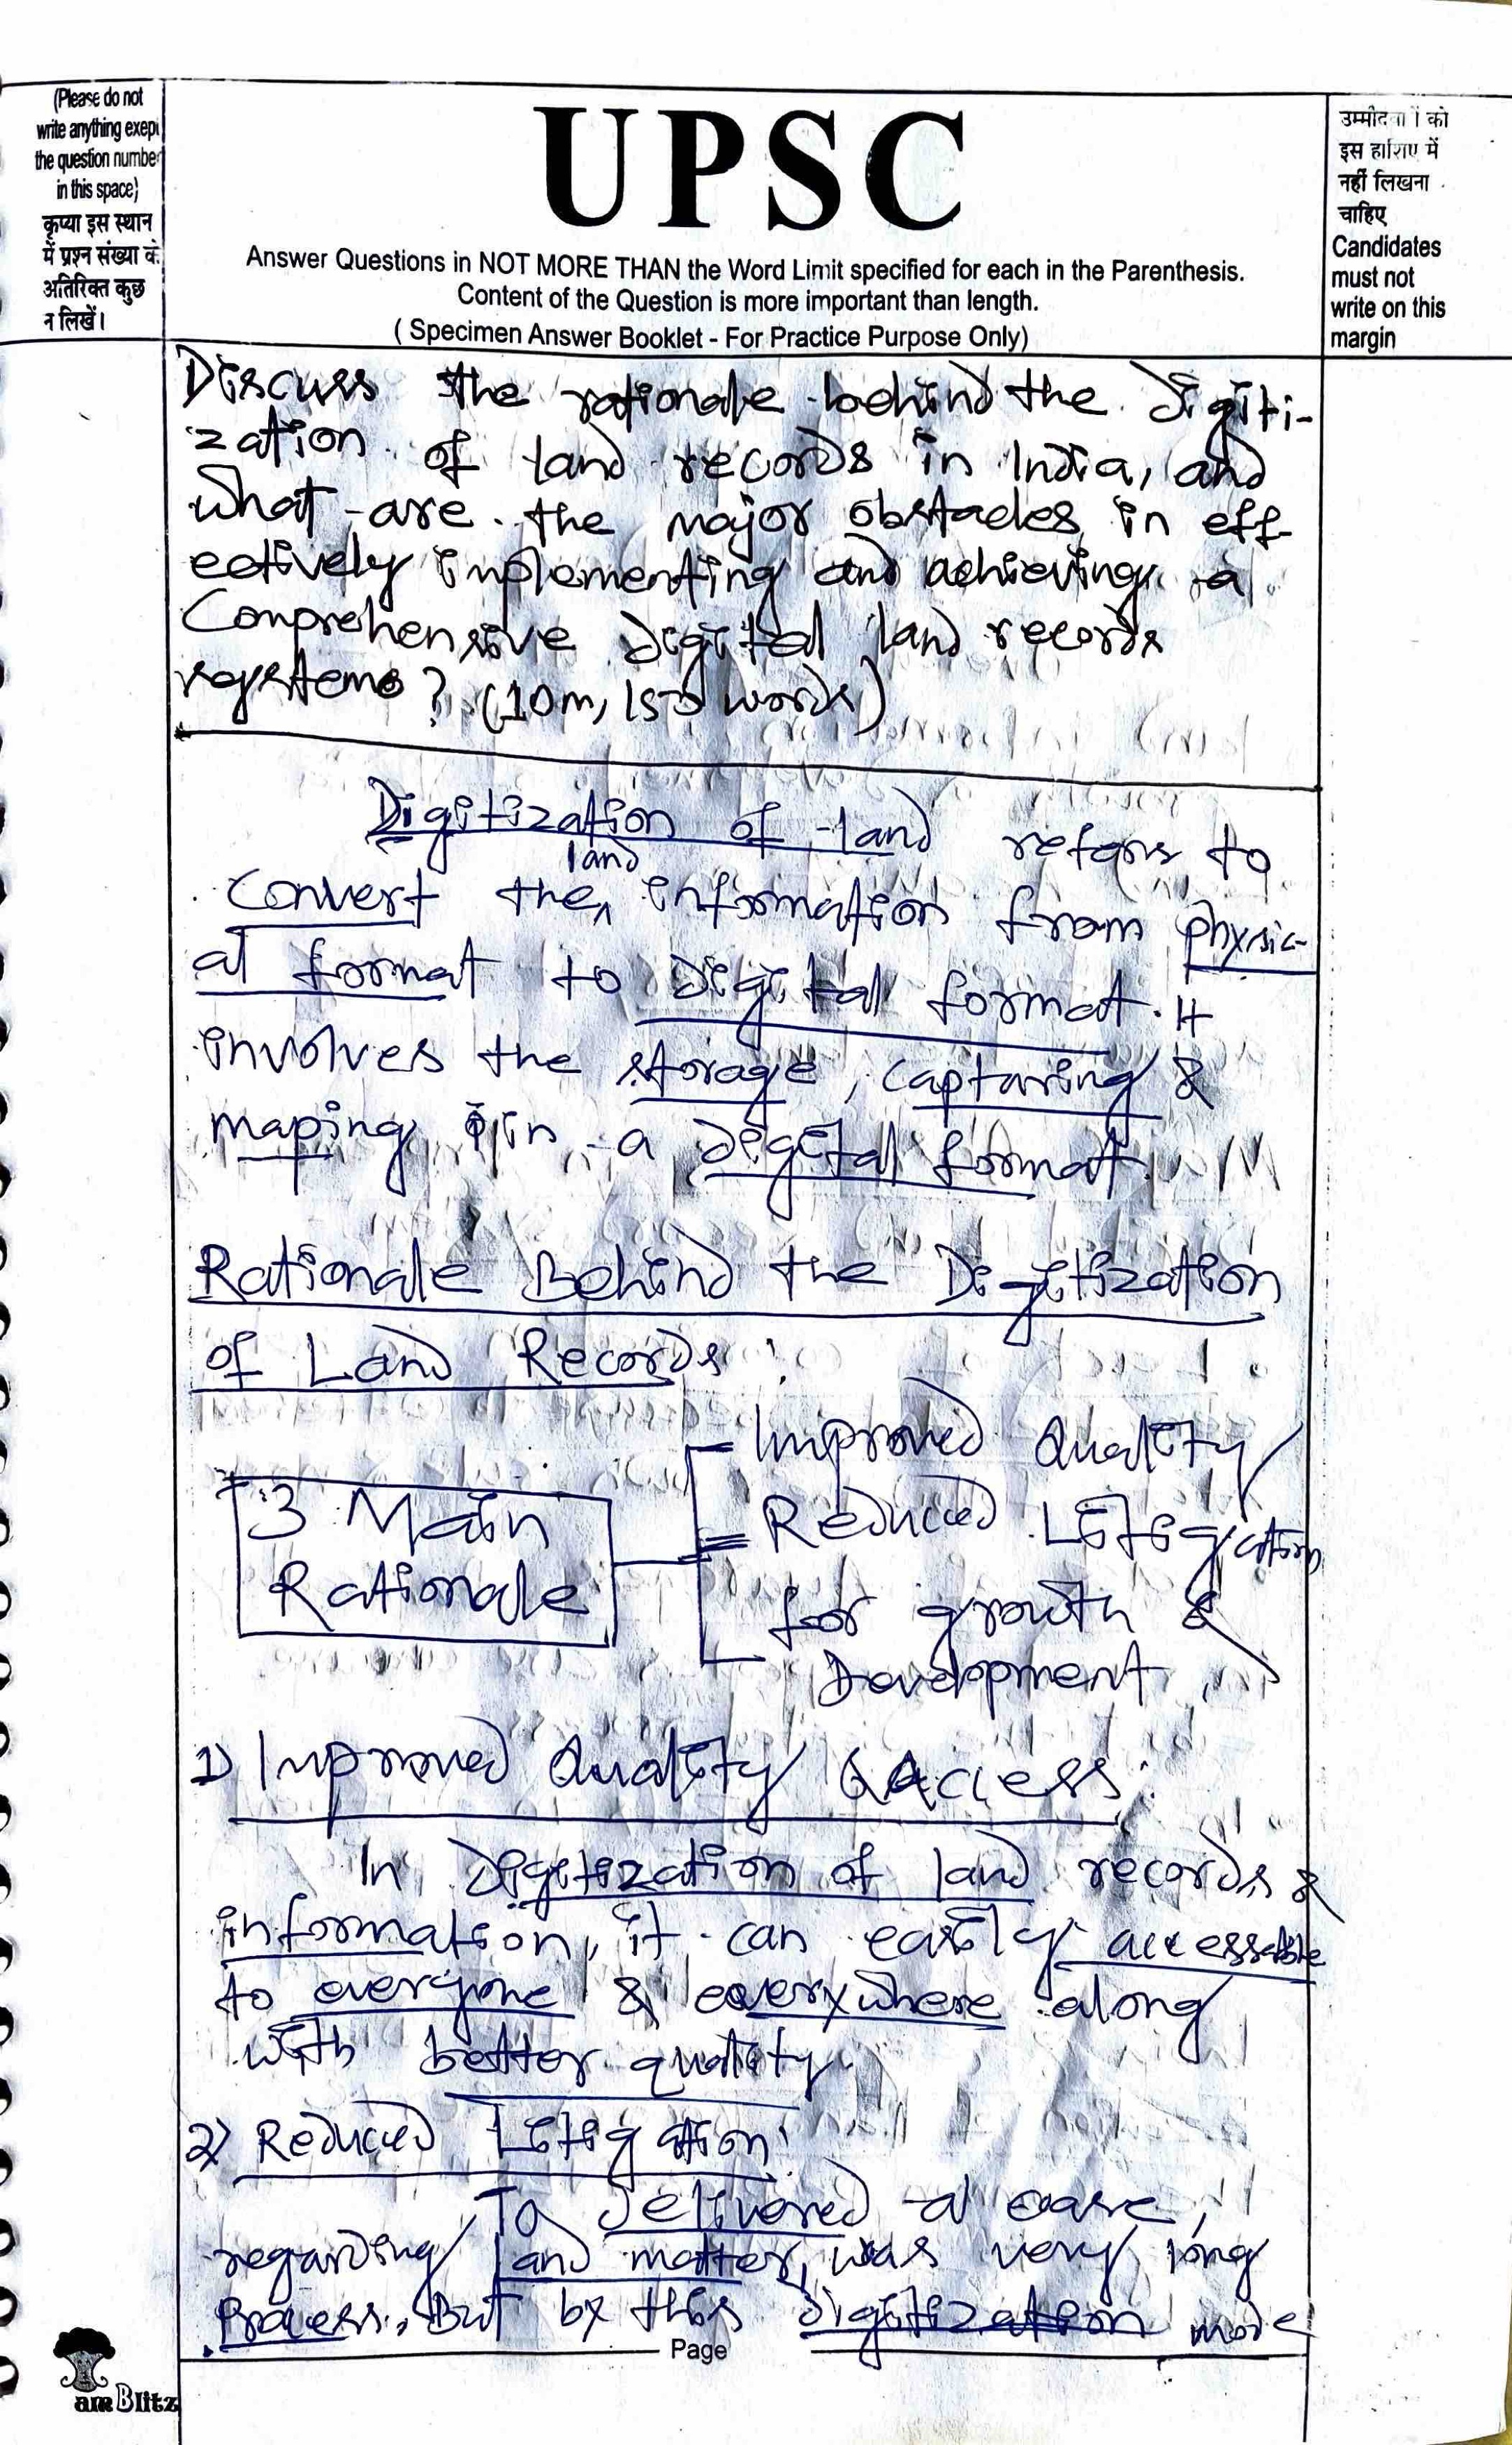 (Please do not
write anything exept
the question number
in this space)
कृप्या इस स्थान
में प्रश्न संख्या के
अतिरिक्त कुछ
न लिखें।
UPSC
Answer Questions in NOT MORE THAN the Word Limit specified for each in the Parenthesis.
Content of the Question is more important than length.
( Specimen Answer Booklet - For Practice Purpose Only)
उम्मीदवारों को
इस हाशिए में
नहीं लिखना
चाहिए
Candidates
must not
write on this
margin
Discuss the rationale behind the digiti-
zation of land records in India, and
what are the major obstacles in eff-
ectively implementing and achieving a
Comprehensive digital land records
systems? (10m, 150 words)
Digitization of land refers to
Convert the land information from physic-
al format to digital format. It
involves the storage, capturing &
maping in a digital format.
Rationale Behind the Digitization
of Land Records :
3 Main
Rationale
Improved Quality
Reduced Litigation
for growth &
Development
1) Improved Quality & Access:
In Digitization of land records &
information, it can easily accessable
to everyone & everywhere along
with better quality.
2) Reduced Litigation:
To delivered a case,
regarding land matter, was very long
Process. But by this digitization more
Page
am Blitz